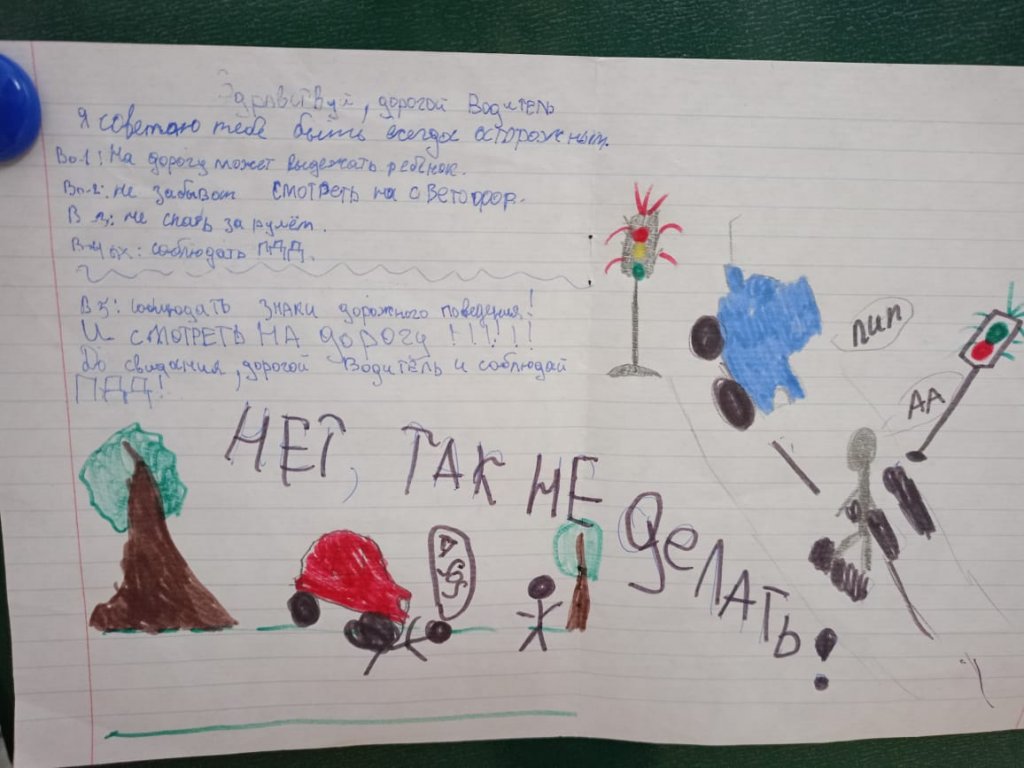 Здравствуй, дорогой Водитель
Я советаю тебе быть всегда осторожным.
Во-1: На дорогу может выдежать ребёнок.
Во-2: не забыват смотреть на светофор.
В 3: не спать за рулём.
В-4 ых: соблюдать ПДД.
В 5: соблюдать знаки дорожного поведения!
И СМОТРЕТЬ НА дорогу !!!!!!
До свидания, дорогой Водитель и соблюдай
ПДД!
НЕТ, ТАК НЕ
ДЕЛАТЬ!
ПИП
АА